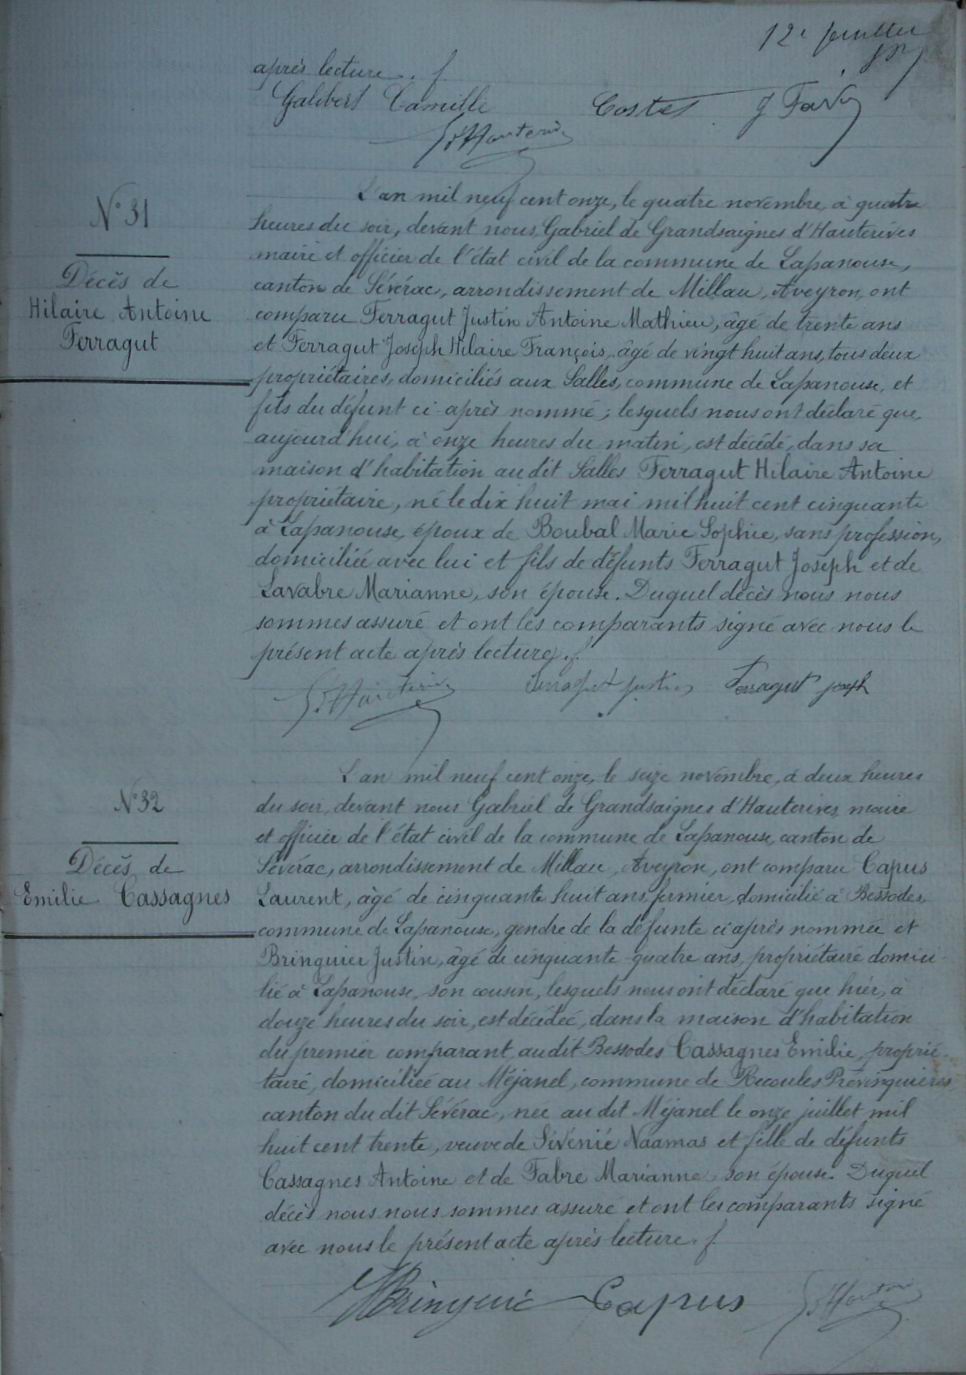 12e feuillet
après lecture. /.
Galibert Camille Costes J Fav
G. d'Hauterives
N° 31
Décès de
Hilaire Antoine
Ferragut
L'an mil neuf cent onze, le quatre novembre, à quatre
heures du soir, devant nous Gabriel de Grandsaignes d'Hauterives
maire et officier de l'état civil de la commune de Lapanouse,
canton de Sévérac, arrondissement de Millau, Aveyron, ont
comparu Ferragut Justin Antoine Mathieu, âgé de trente ans
et Ferragut Joseph Hilaire François, âgé de vingt huit ans, tous deux
propriétaires, domiciliés aux Salles, commune de Lapanouse, et
fils du défunt ci-après nommé; lesquels nous ont déclaré que,
aujourd'hui, à onze heures du matin, est décédé, dans sa
maison d'habitation au dit Salles Ferragut Hilaire Antoine
propriétaire, né le dix huit mai mil huit cent cinquante
à Lapanouse, époux de Boubal Marie Sophie, sans profession,
domiciliée avec lui et fils de défunts Ferragut Joseph et de
Lavabre Marianne, son épouse. Duquel décès nous nous
sommes assuré et ont les comparants signé avec nous le
présent acte après lecture. /.
G. d'Hauterives Ferragut Justin Ferragut Joseph
N° 32
Décès de
Emilie Cassagnes
L'an mil neuf cent onze, le seize novembre, à deux heures
du soir, devant nous Gabriel de Grandsaignes d'Hauterives, maire
et officier de l'état civil de la commune de Lapanouse, canton de
Sévérac, arrondissement de Millau, Aveyron, ont comparu Capus
Laurent, âgé de cinquante huit ans, fermier, domicilié à Bessodes,
commune de Lapanouse, gendre de la défunte ci après nommée et
Bringuier Justin, âgé de cinquante-quatre ans, propriétaire domici-
lié à Lapanouse, son cousin, lesquels nous ont déclaré que hier, à
douze heures du soir, est décédée, dans la maison d'habitation
du premier comparant, au dit Bessodes Cassagnes Emilie, proprié-
taire, domiciliée au Méjanel, commune de Recoules Prévinquières
canton du dit Sévérac, née au dit Méjanel le onze juillet mil
huit cent trente, veuve de Sivénié Naamas et fille de défunts
Cassagnes Antoine et de Fabre Marianne, son épouse. Duquel
décès nous nous sommes assuré et ont les comparants signé
avec nous le présent acte après lecture. /.
Bringuié Capus G. d'Hauterives